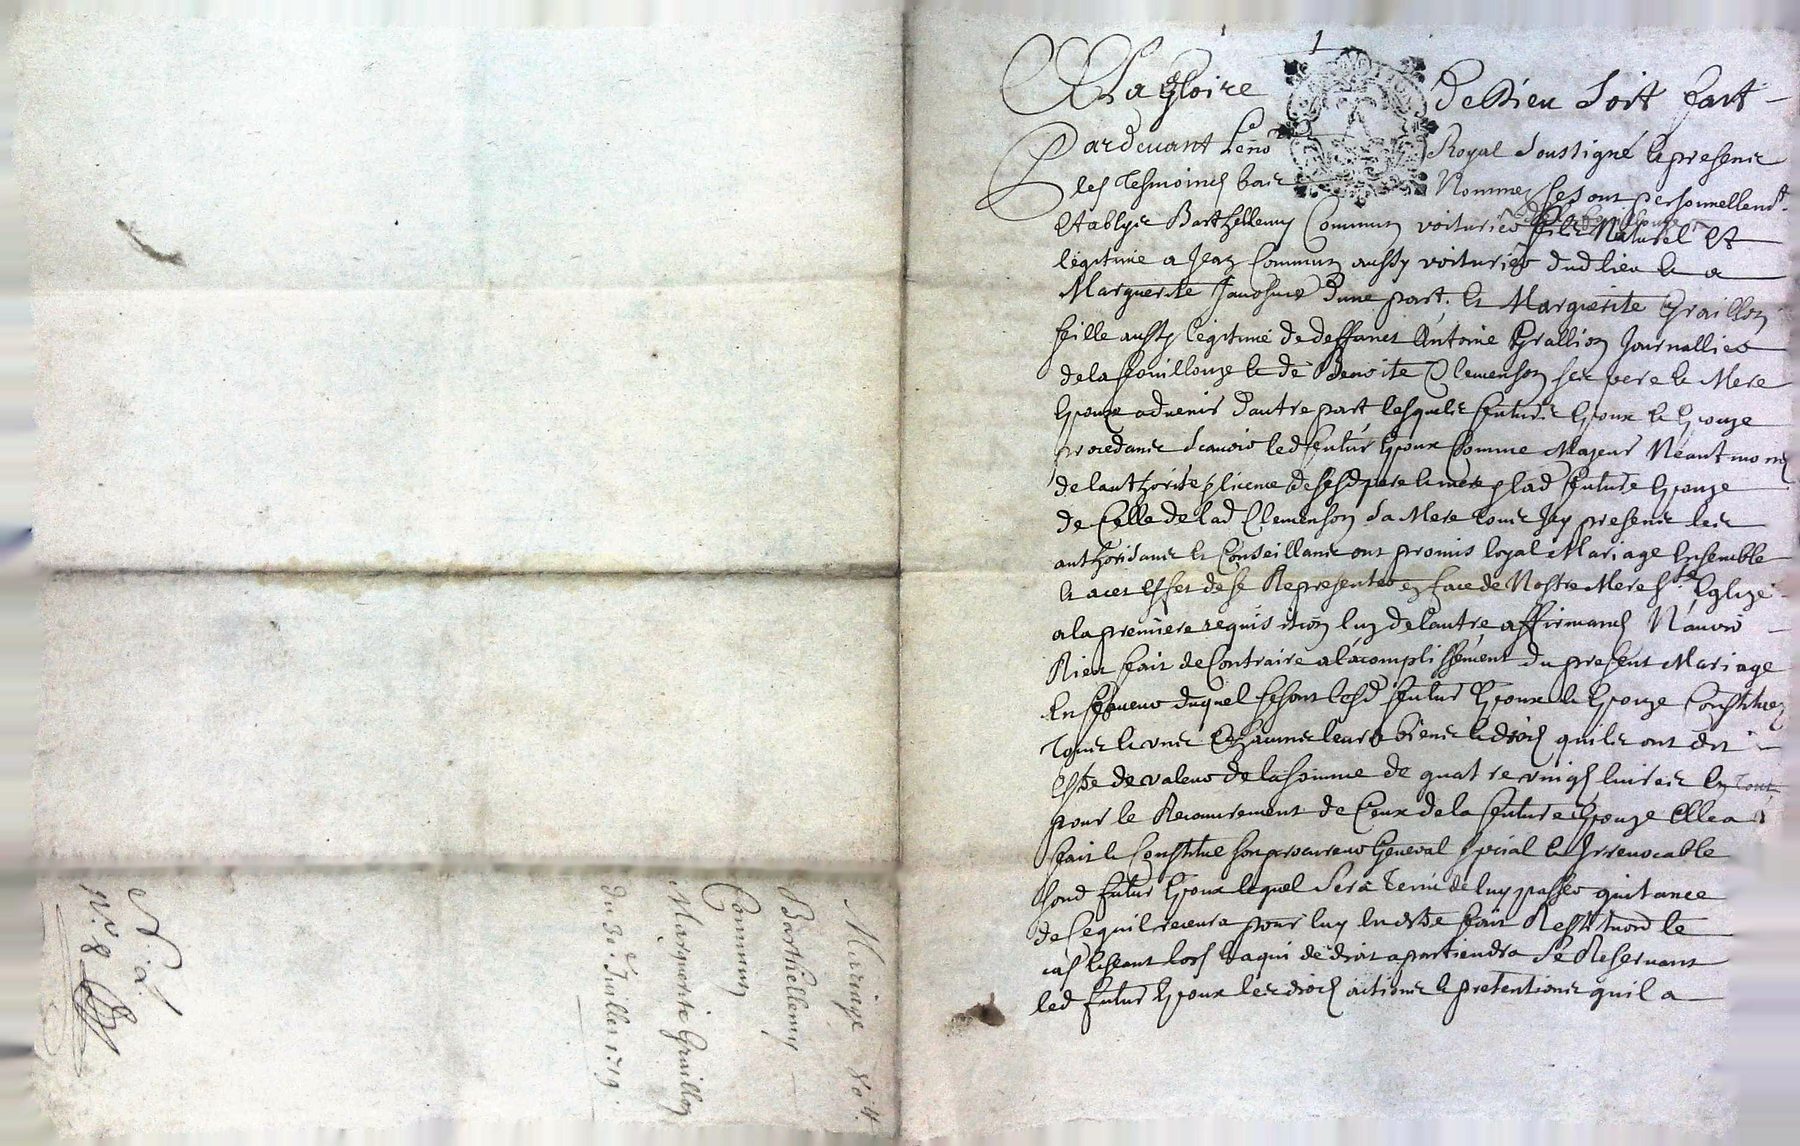 1
A La Gloire de Dieu Soit fait
Pardevant Le no.re Royal Soussigné & presens
les Tesmoings bas Nommez se sont personnellem.t
Etablys Barthellemy Commun voiturier fils Naturel Et
légitime a Jean Commun aussy voiturier dud lieu & a
Marguerite d'une part, Et Marguerite Graillon
fille aussy légitime de deffunct Antoine Grallion Journallier
de la fouillouze & de Benoite Clemenson ses pere & Mere
Epouze advenir d'autre part lesquels futurs Epoux & Epouze
procedans scavoir led futur Epoux Comme Majeur Néantmoins
de l'authorité & licence de sesd pere & mere & lad future Epouze
de Celle de lad Clemenson sa Mere tous Icy presens les
authorisans & Conseillans ont promis loyal Mariage Ensemble
& a cet Effet de se Representer en face de Nostre Mere S.te Eglize
a la premiere requisition l'un de l'autre affirmans N'avoir
Rien fait de Contraire a l'acomplissement du present Mariage
En faveur duquel se sont lesd futur Epoux & Epouze Constitués
Tous & uns Chacuns leurs biens & droicts quils ont dit
Estre de valeur de la somme de quatre vingts livres En tout
pour le Recouvrement de Ceux de la future Epouze Elle a
fait & Constitue son procureur General special & Irrevocable
sond futur Epoux lequel sera Tenu de luy passer quitance
de Ce quil recevra pour luy En estre fait Restitution le
cas Escheant lors & a qui de droit apartiendra Se Reservant
led futur Epoux les droicts actions & pretentions quil a
Mariage 80 lt.
Barthellemy
Commun
Marguerite Graillon
du 30.e Juillet 1719.
N. a.
N.o 8